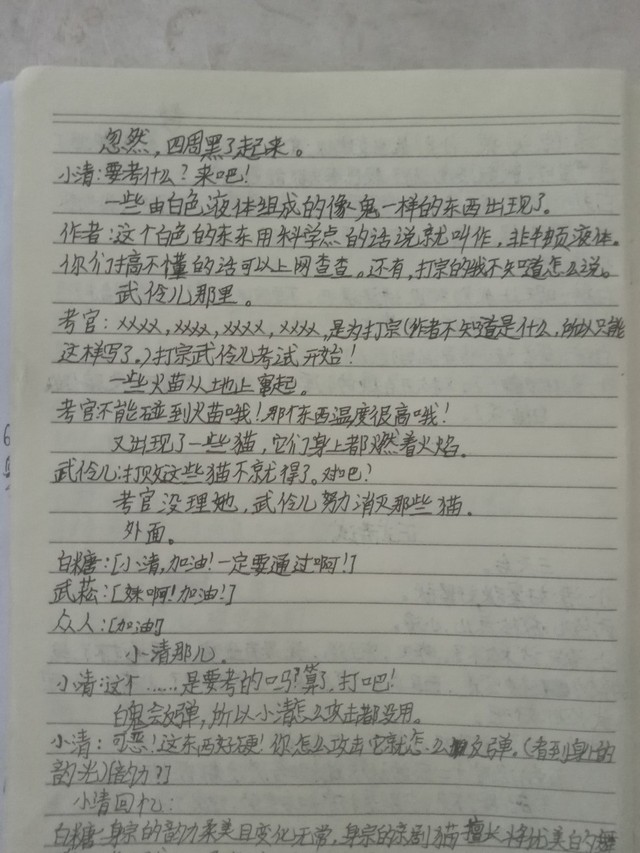 忽然，四周黑了起来。
小清：要考什么？来吧！
一些由白色液体组成的像鬼一样的东西出现了。
作者：这个白色的东东用科学点的话说就叫作，非牛顿液体。
你们搞不懂的话可以上网查查。还有，打宗的我不知道怎么说。
武伶儿那里。
考官：xxxx，xxxx，xxxx，xxxx，是为打宗（作者不知道是什么，所以只能
这样写了。）打宗武伶儿考试开始！
一些火苗从地上窜起。
考官不能碰到火苗哦！那个东西温度很高哦！
又出现了一些猫，它们身上都燃着火焰。
武伶儿：打败这些猫不就得了。对吧？
考官没理她，武伶儿努力消灭那些猫。
外面。
白糖：[小清，加油！一定要通过啊！]
武菘：[妹啊！加油！]
众人：[加油]
小清那儿。
小清：这个……是要考的吗？算了，打吧！
白鬼会反弹，所以小清怎么攻击都没用。
小清：可恶！这东西好硬！你怎么攻击它就怎么反弹。（看到身上的
韵光）[韵力？]
小清回忆：
白糖：身宗的韵力柔美且变化无常，身宗的京剧猫擅长将优美的舞